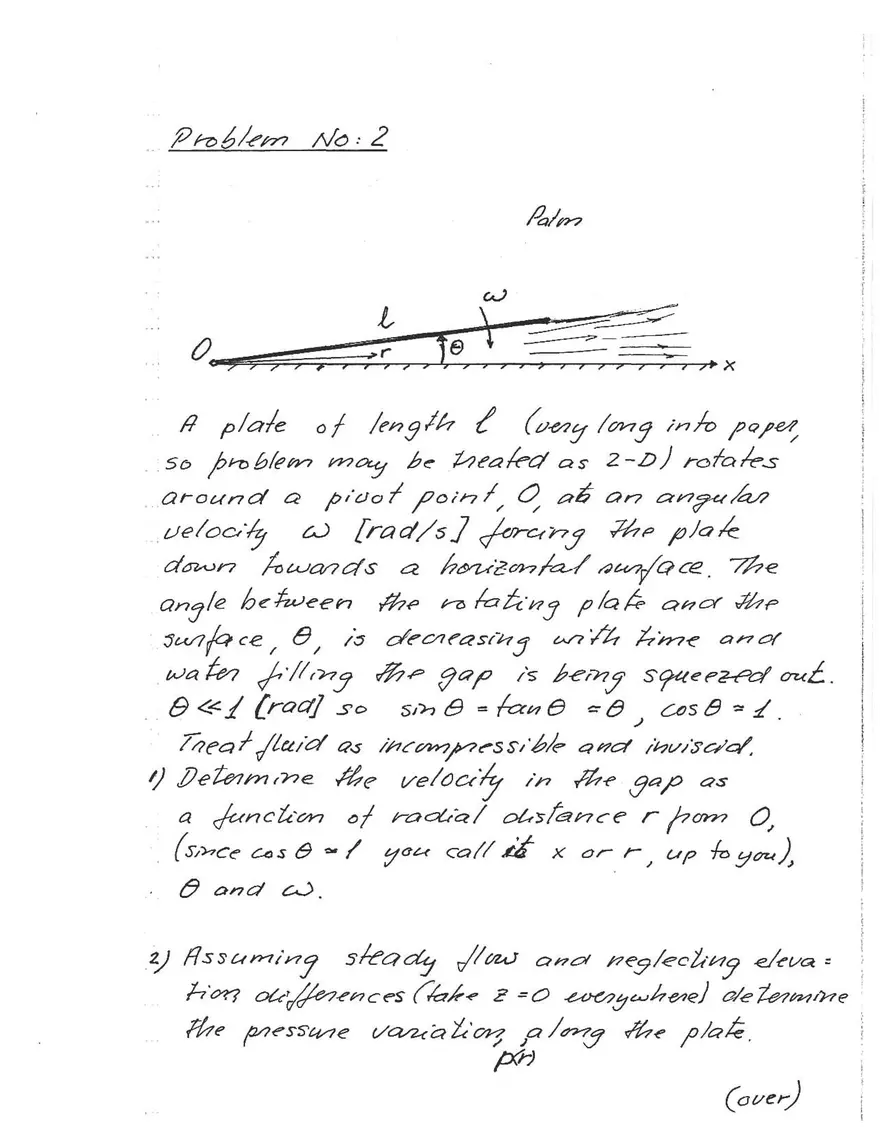 Problem No: 2
Patm
ω
l
O
r
θ
x
A plate of length l (very long into paper,
so problem may be treated as 2-D) rotates
around a pivot point, O, at an angular
velocity ω [rad/s] forcing the plate
down towards a horizontal surface. The
angle between the rotating plate and the
surface, θ, is decreasing with time and
water filling the gap is being squeezed out.
θ << 1 [rad] so sin θ = tan θ = θ, cos θ ≈ 1.
Treat fluid as incompressible and inviscid.
1) Determine the velocity in the gap as
a function of radial distance r from O,
(since cos θ ≈ 1 you call it x or r, up to you),
θ and ω.
2) Assuming steady flow and neglecting eleva=
tion differences (take z = 0 everywhere) determine
the pressure variation, along the plate.
p(r)
(over)